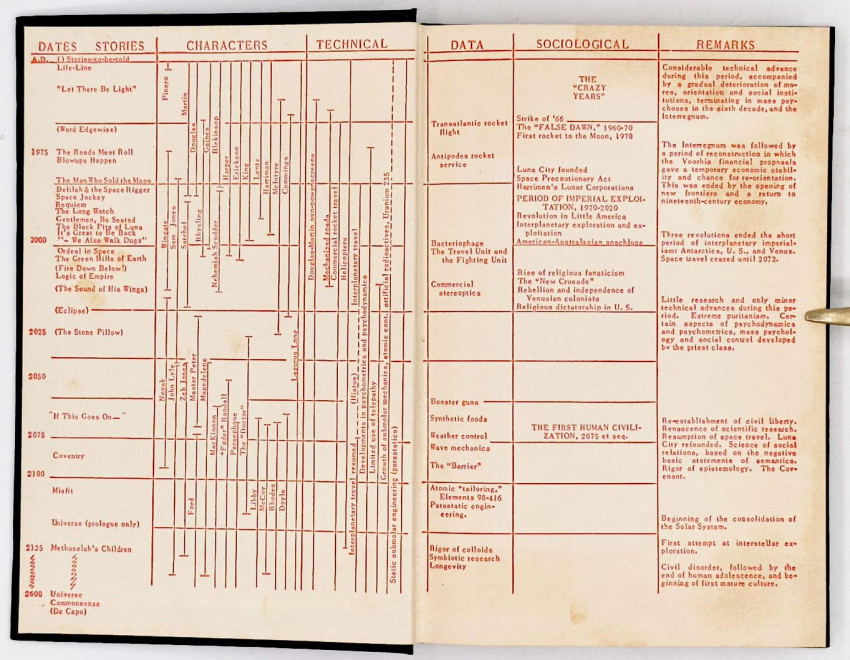 DATES STORIES
CHARACTERS
TECHNICAL
A.D. () Stories-to-be-told
Life-Line
"Let There Be Light"
(Word Edgewise)
1975 The Roads Must Roll
Blowups Happen
The Man Who Sold the Moon
Delilah & the Space Rigger
Space Jockey
Requiem
The Long Watch
Gentlemen, Be Seated
The Black Pits of Luna
It's Great to be Back
"— We Also Walk Dogs"
2000
Ordeal in Space
The Green Hills of Earth
(Fire Down Below!)
Logic of Empire
(The Sound of His Wings)
(Eclipse)
2025 (The Stone Pillow)
2050
"If This Goes On—"
2075
Coventry
2100
Misfit
Universe (prologue only)
2125 Methuselah's Children
2600 Universe
Commonsense
(Da Capo)
Pinero
Martin
Douglas
Gaines
Blekinsop
Harper
Erickson
King
Lentz
Harriman
McIntyre
Cummings
Wingate
Sam Jones
Satchel
Rhysling
Nehemiah Scudder
Lazarus Long
Novak
John Lyle
Zeb Jones
Master Peter
Magdelene
MacKinnon
"Fader" Randall
Persephone
The "Doctor"
Ford
Libby
McCoy
Rhodes
Doyle
Douglas-Martin sun-power screens
Mechanized roads
Commercial rocket travel
Helicopters
Interplanetary travel
Interplanetary travel resumed
(Hiatus)
Developments in psychometrics and psychodynamics
Limited use of telepathy
Growth of submolar mechanics, atomic cont.
artificial radioactives, Uranium 235
Static submolar engineering (parastatics)
DATA
SOCIOLOGICAL
REMARKS
Transatlantic rocket
flight
Antipodes rocket
service
Bacteriophage
The Travel Unit and
the Fighting Unit
Commercial
stereoptics
Booster guns
Synthetic foods
Weather control
Wave mechanics
The "Barrier"
Atomic "tailoring,"
Elements 98-416
Parastatic engin-
eering.
Rigor of colloids
Symbiotic research
Longevity
THE
"CRAZY
YEARS"
Strike of '66
The "FALSE DAWN," 1960-70
First rocket to the Moon, 1978
Luna City founded
Space Precautionary Act
Harriman's Lunar Corporations
PERIOD OF IMPERIAL EXPLOI-
TATION, 1970-2020
Revolution in Little America
Interplanetary exploration and ex-
ploitation
American-Australasian anschluss
Rise of religious fanaticism
The "New Crusade"
Rebellion and independence of
Venusian colonists
Religious dictatorship in U. S.
THE FIRST HUMAN CIVILI-
ZATION, 2075 et seq.
Considerable technical advance
during this period, accompanied
by a gradual deterioration of mo-
res, orientation and social insti-
tutions, terminating in mass psy-
choses in the sixth decade, and the
Interregnum.
The Interregnum was followed by
a period of reconstruction in which
the Voorhis financial proposals
gave a temporary economic stabil-
ity and chance for re-orientation.
This was ended by the opening of
new frontiers and a return to
nineteenth-century economy.
Three revolutions ended the short
period of interplanetary imperial-
ism: Antarctica, U. S., and Venus.
Space travel ceased until 2072.
Little research and only minor
technical advances during this pe-
riod. Extreme puritanism. Cer-
tain aspects of psychodynamics
and psychometrics, mass psychol-
ogy and social control developed
by the priest class.
Re-establishment of civil liberty.
Renascence of scientific research.
Resumption of space travel. Luna
City refounded. Science of social
relations, based on the negative
basic statements of semantics.
Rigor of epistemology. The Cov-
enant.
Beginning of the consolidation of
the Solar System.
First attempt at interstellar ex-
ploration.
Civil disorder, followed by the
end of human adolescence, and be-
ginning of first mature culture.